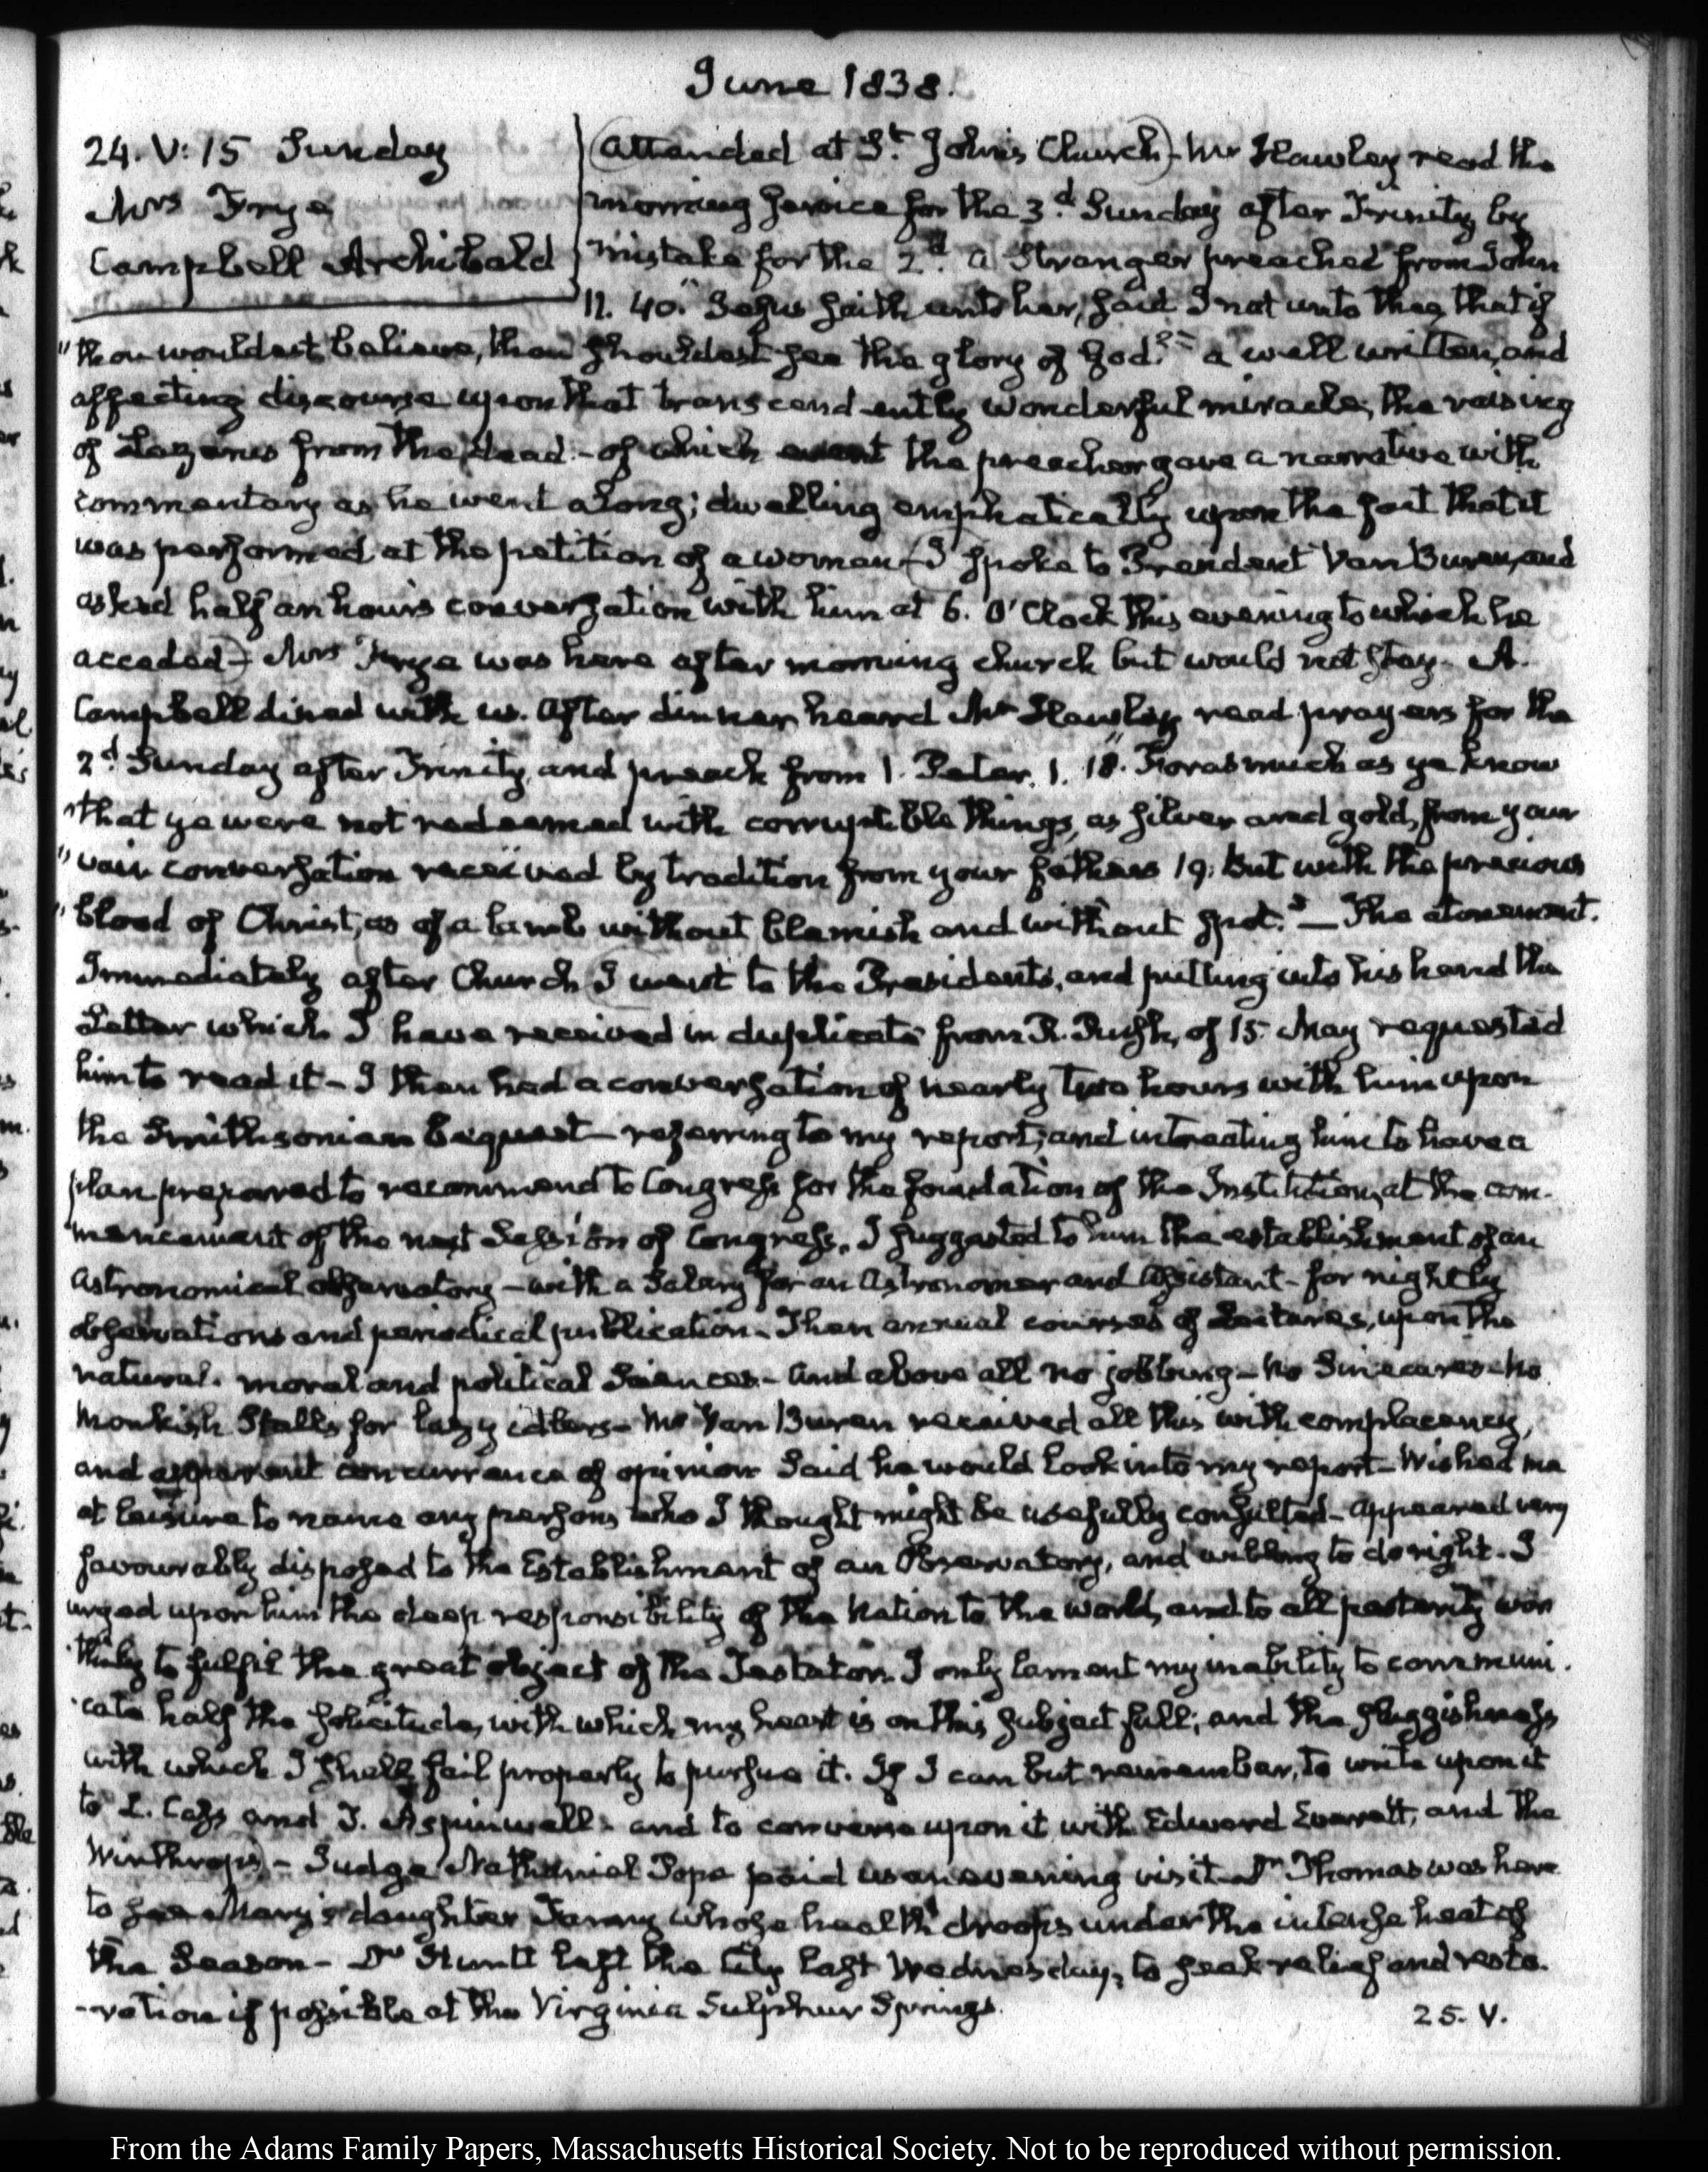 June 1838.
24. V: 15 Sunday
Mrs Frye
Campbell Archibald
(Attended at St. John's Church)- Mr Hawley read the
morning service for the 3d. Sunday after Trinity by
mistake for the 2d. a Stranger preached from John
11. 40. "Jesus saith unto her, said I not unto thee, that if
"thou wouldest believe, thou shouldest see the glory of God?" a well written, and
affecting discourse upon that transcendently wonderful miracle, the raising
of Lazarus from the dead - of which event the preacher gave a narrative with
commentary as he went along; dwelling emphatically upon the fact that it
was performed at the petition of a woman - (I spoke to President Van Buren, and
asked half an hour's conversation with him at 6. O'Clock this evening to which he
acceded)- Mrs Frye was here after morning church but would not stay. A.
Campbell dined with us. After dinner heard Mr Hawley read prayers for the
2d. Sunday after Trinity, and preach from 1. Peter. 1. 18. "Forasmuch as ye know
"that ye were not redeemed with corruptible things, as silver and gold, from your
"vain conversation received by tradition from your fathers 19. But with the precious
"blood of Christ, as of a lamb without blemish and without spot."— The atonement.
Immediately after Church (I went to the President's, and putting into his hand the
Letter which I have received in duplicate from R. Rush, of 15. May requested
him to read it - I then had a conversation of nearly two hours with him upon
the Smithsonian bequest - referring to my report, and intreating him to have a
plan prepared to recommend to Congress for the foundation of the Institution, at the com-
mencement of the next Session of Congress. I suggested to him the establishment of an
Astronomical observatory - with a Salary for an Astronomer and Assistant - for nightly
observations and periodical publication. Then annual courses of Lectures, upon the
natural. moral and political Sciences - And above all no jobbing - no Sinecures - no
Monkish Stalls for lazy idlers - Mr Van Buren received all this with complacency,
and apparent concurrence of opinion Said he would look into my report - Wished me
at leisure to name any persons who I thought might be usefully consulted - appeared very
favourably disposed to the Establishment of an Observatory, and willing to do right. I
urged upon him the deep responsibility of the Nation to the world, and to all posterity wor
thily to fulfil the great object of the Testator. I only lament my inability to communi.
cate half the solicitude, with which my heart is on this subject full; and the sluggishness
with which I shall fail properly to pursue it. If I can but remember, to write upon it
to L. Cass and T. Aspinwall - and to converse upon it with Edward Everett, and the
Winthrops)- Judge Nathaniel Pope paid us an evening visit. Dr Thomas was here
to see Mary's daughter Fanny whose health droops under the intense heat of
the Season - Dr Huntt left the City last Wednesday, to seek relief and resto.
-ration if possible at the Virginia Sulphur Springs.
25. V.
From the Adams Family Papers, Massachusetts Historical Society. Not to be reproduced without permission.